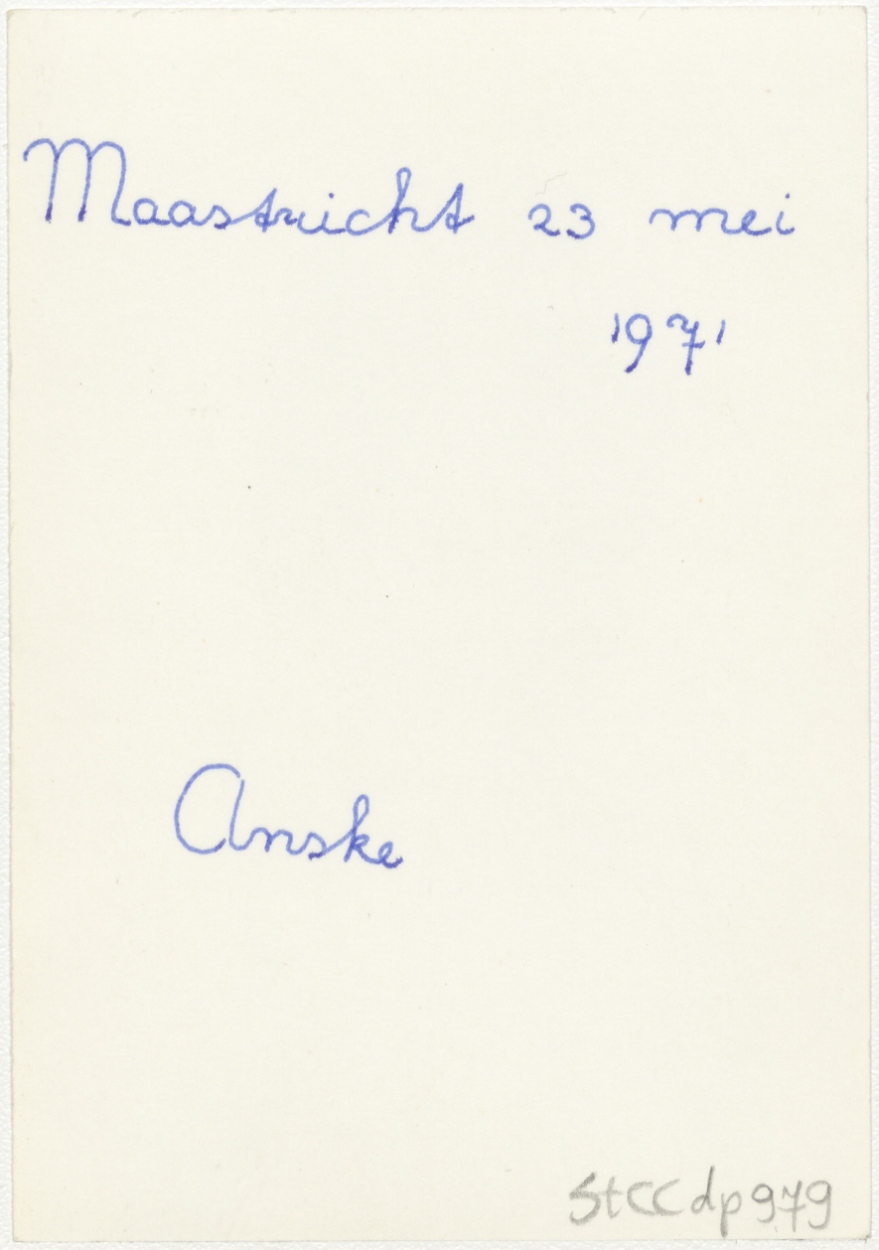 Maastricht 23 mei
1971
Anske
StCC dp 979